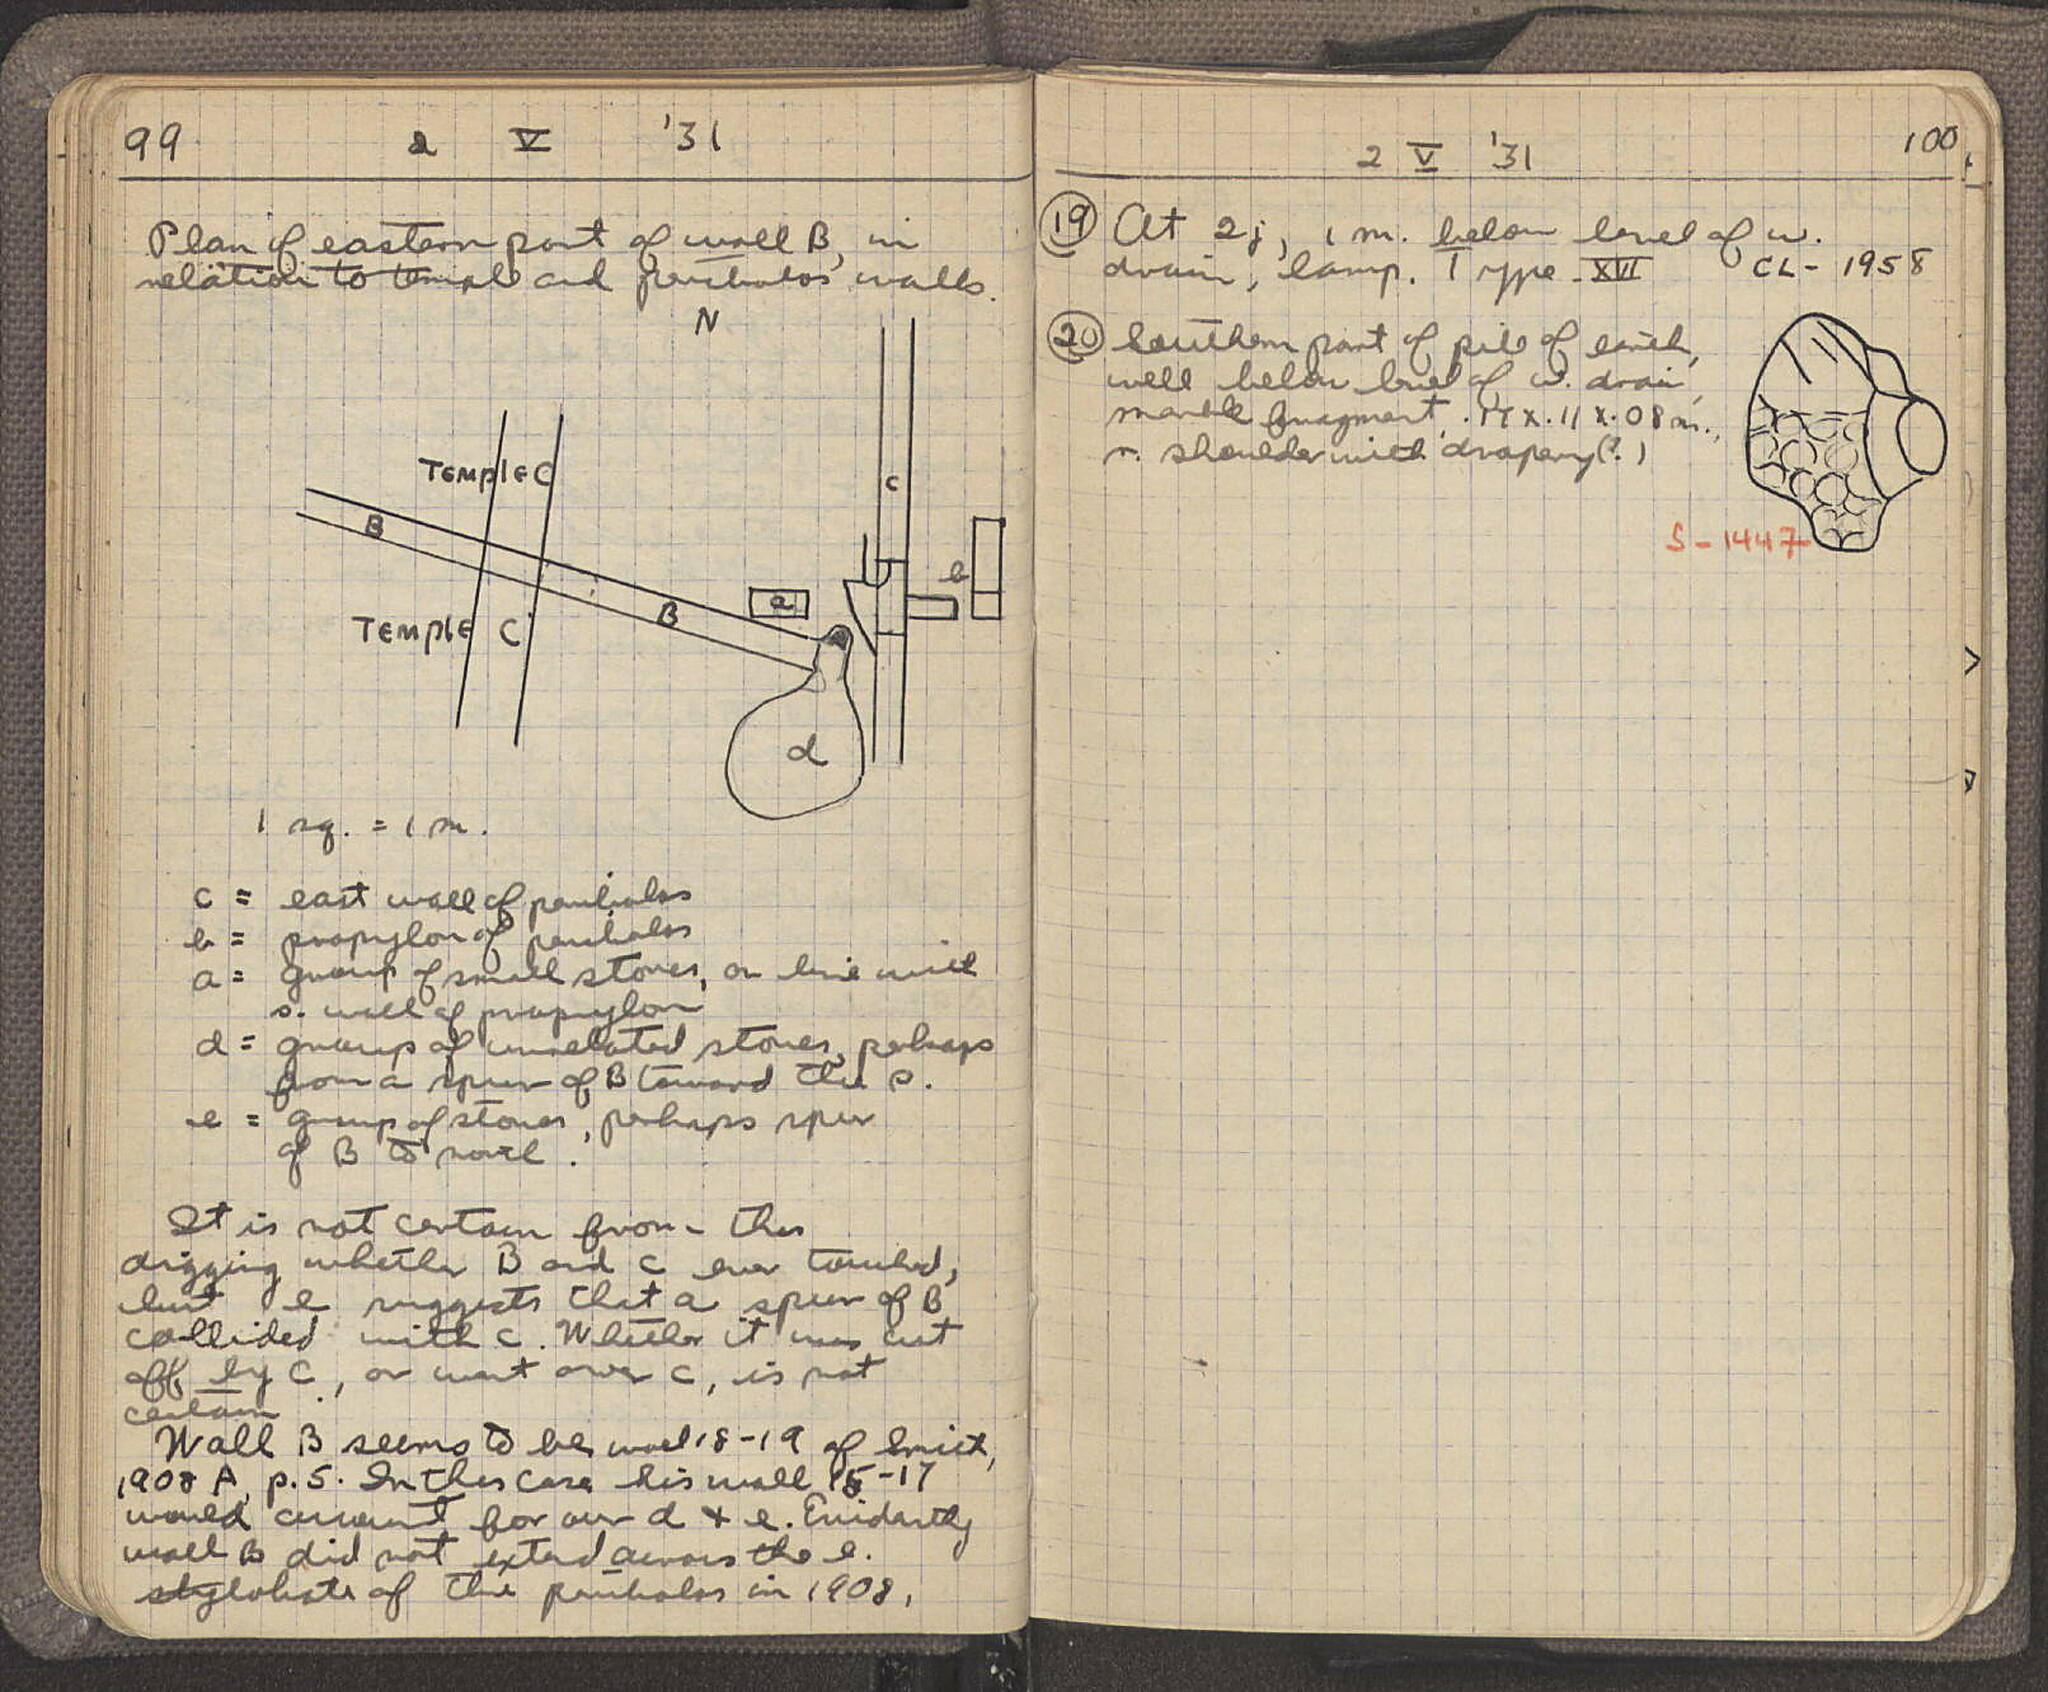 99 2 V '31
Plan of eastern part of wall B, in
relation to temple and peribolos walls.
N
TEMPLE C
c
B
b
a
B
TEMPLE C
d
1 sq. = 1 m.
c = east wall of peribolos
b = propylon of peribolos
a = group of small stones, on line with
s. wall of propylon
d = group of unrelated stones, perhaps
from a spur of B toward the s.
e = group of stones, perhaps spur
of B to north.
It is not certain from this
digging whether B and C ever touched,
but e suggests that a spur of B
collided with C. Whether it was cut
off by C, or went over C, is not
certain
Wall B seems to be wall 18-19 of Smith,
1908 A, p. 5. In this case his wall 15-17
would account for our d + e. Evidently
wall B did not extend across the e.
stylobate of the peribolos in 1908.
2 V '31 100
19 At 2j, 1 m. below level of w.
drain, lamp. Type XVI CL - 1958
20 Southern part of pile of earth,
well below level of w. drain,
marble fragment, .17 x .11 x .08 m.,
r. shoulder with drapery (?.)
S - 1447